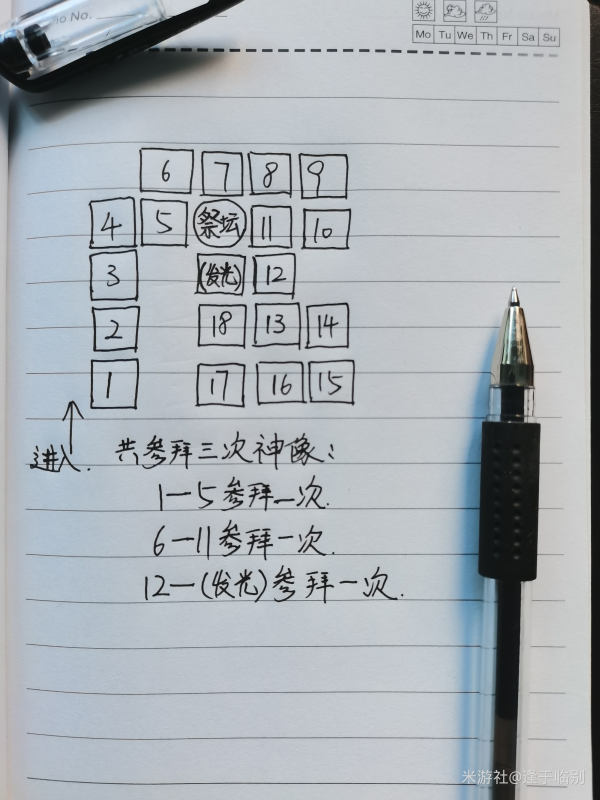 No.
Mo Tu We Th Fr Sa Su
6 7 8 9
4 5 祭坛 11 10
3 (发光) 12
2 18 13 14
1 17 16 15
进入.
共参拜三次神像:
1—5参拜一次.
6—11参拜一次.
12—(发光)参拜一次.
米游社@逢于临别